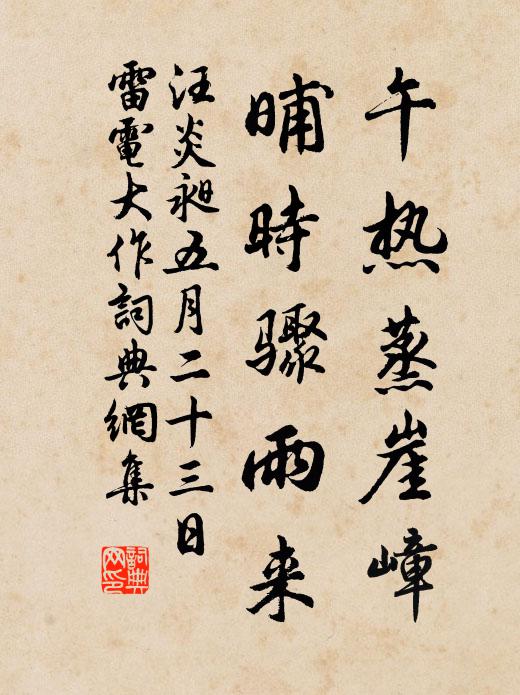 午热蒸崖嶂
晡時骤雨来
汪炎昶五月二十三日
雷電大作詞典網集
詞典
网印